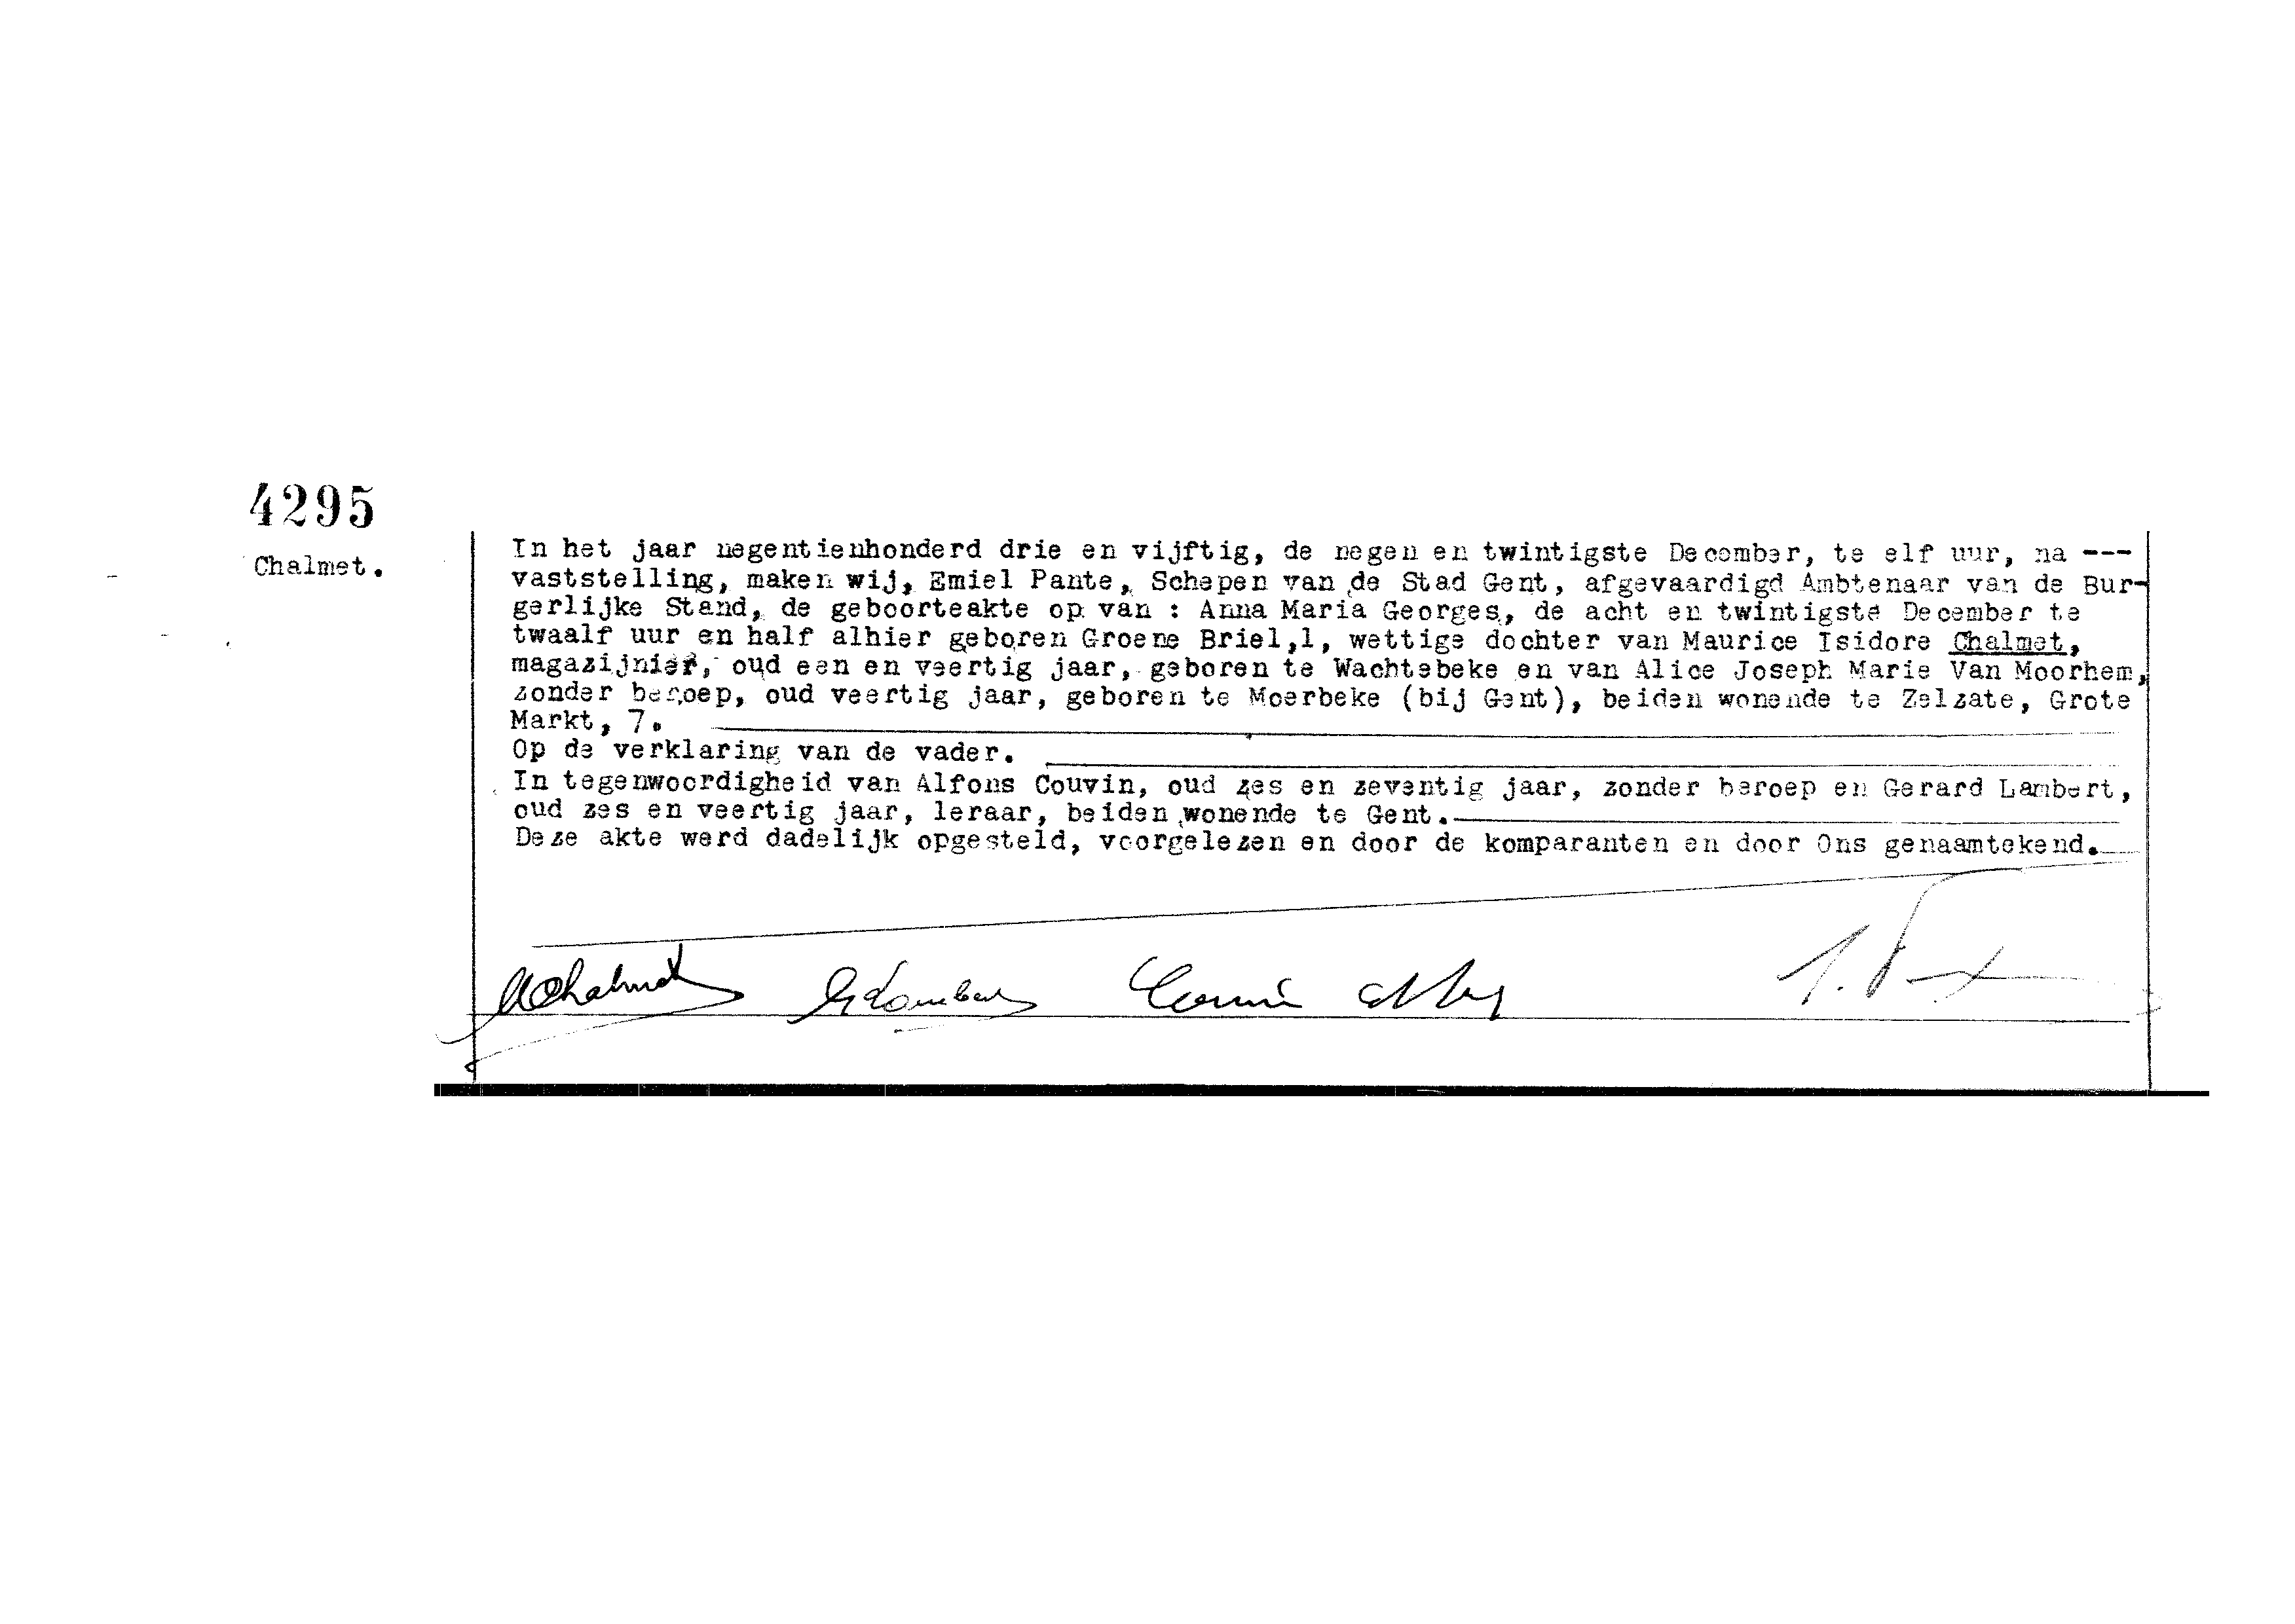 4295
Chalmet.
In het jaar negentienhonderd drie en vijftig, de negen en twintigste December, te elf uur, na ---
vaststelling, maken wij, Emiel Pante, Schepen van de Stad Gent, afgevaardigd Ambtenaar van de Bur-
gerlijke Stand, de geboorteakte op van : Anna Maria Georges, de acht en twintigste December te
twaalf uur en half alhier geboren Groene Briel,1, wettige dochter van Maurice Isidore Chalmet,
magazijnier, oud een en veertig jaar, geboren te Wachtebeke en van Alice Joseph Marie Van Moorhem,
zonder beroep, oud veertig jaar, geboren te Moerbeke (bij Gent), beiden wonende te Zelzate, Grote
Markt, 7.
Op de verklaring van de vader.
In tegenwoordigheid van Alfons Couvin, oud zes en zeventig jaar, zonder beroep en Gerard Lambert,
oud zes en veertig jaar, leraar, beiden wonende te Gent.
Deze akte werd dadelijk opgesteld, voorgelezen en door de komparanten en door Ons genaamtekend.
MChalmet